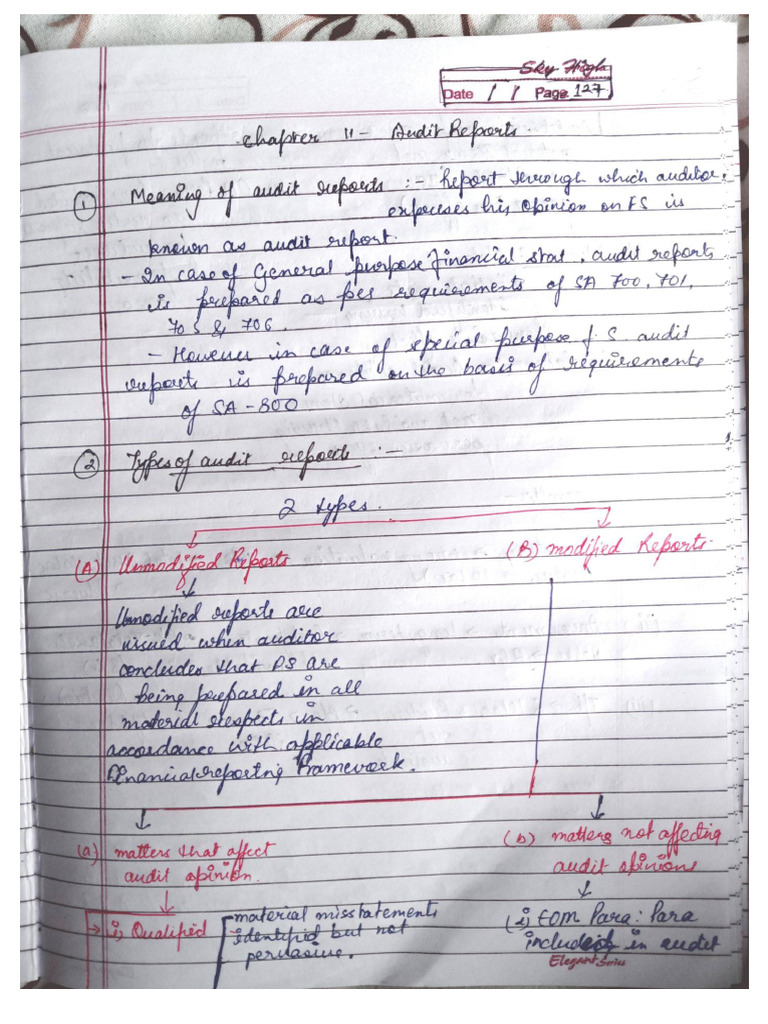 Sky High
Date / / Page 127
Chapter 11 - Audit Reports.
① Meaning of audit reports :- Report through which auditor
expresses his opinion on FS is
known as audit report.
- In case of General purpose financial stat, audit reports
is prepared as per requirements of SA 700, 701,
705 & 706.
- However in case of special purpose f.S. audit
reports is prepared on the basis of requirements
of SA-800
② Types of audit reports :-
2 types.
(A) Unmodified Reports
(B) modified Reports.
Unmodified reports are
issued when auditor
concludes that FS are
being prepared in all
material respects in
accordance with applicable
financial reporting framework.
(a) matters that affect
audit opinion.
(b) matters not affecting
audit opinions
→ i) Qualified
material misstatements
identified but not
pervasive.
(i) EOM Para: Para
included in audit
Elegant Series